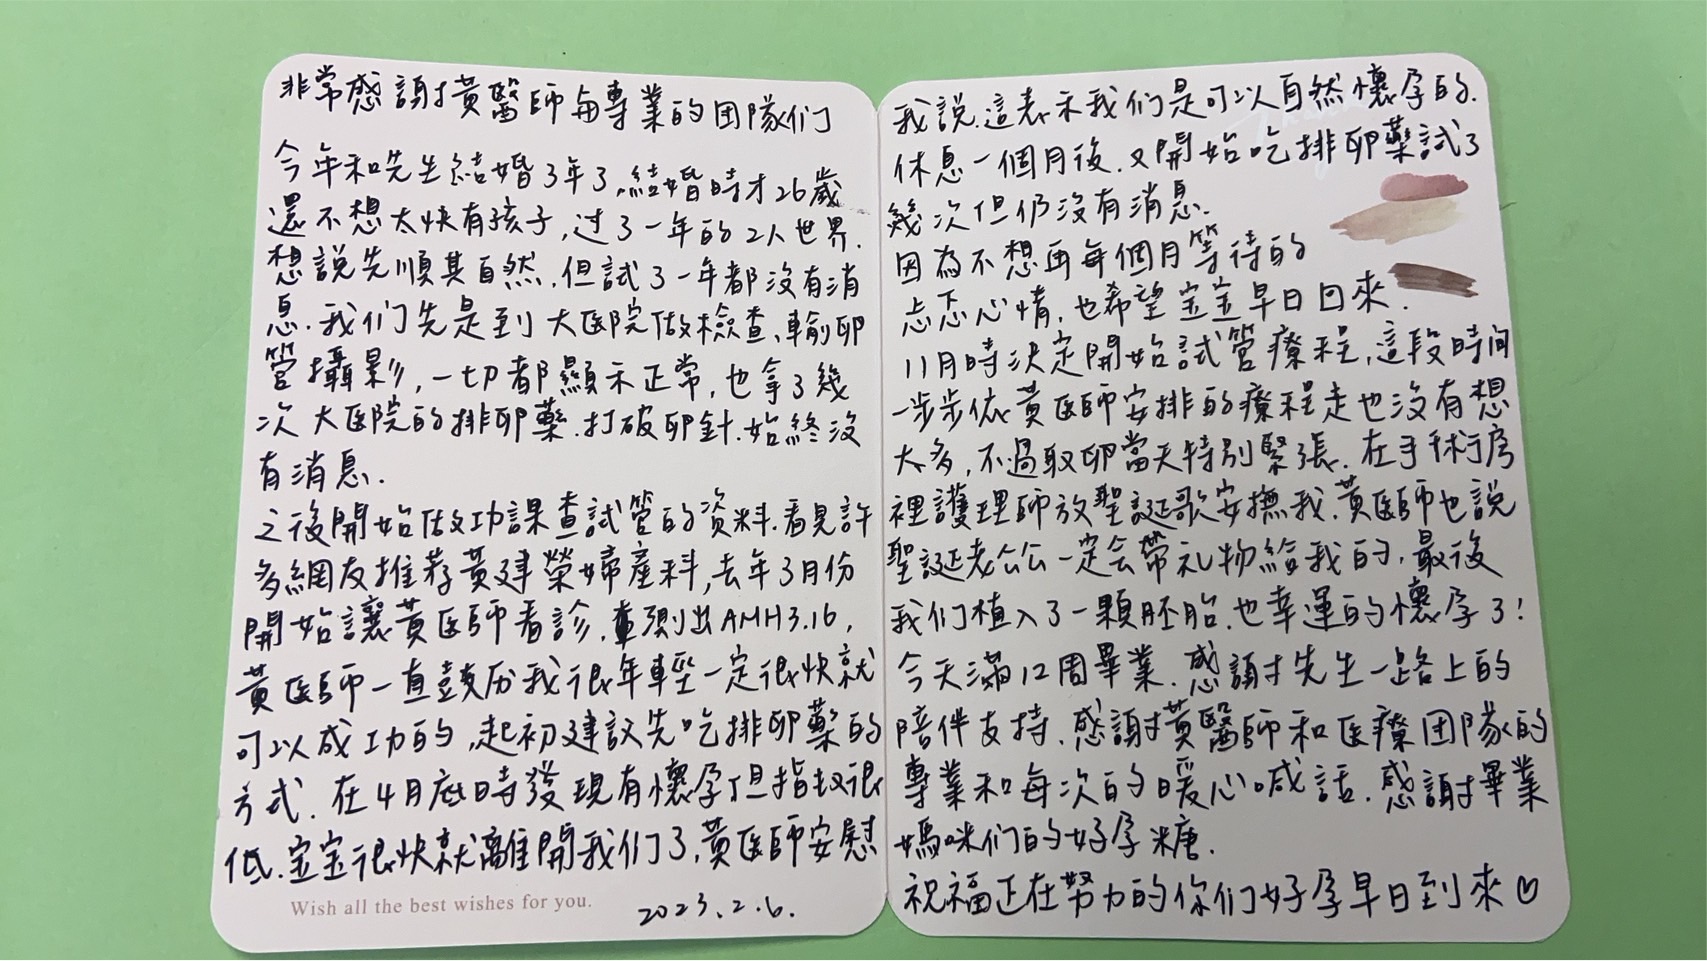 非常感謝黃醫師與專業的团隊们
今年和先生結婚3年了.結婚時才26歲
還不想太快有孩子,过了一年的2人世界.
想說先順其自然.但試了一年都沒有消
息.我们先是到大医院做檢查、輸卵
管攝影,一切都顯示正常,也拿了幾
次大医院的排卵藥.打破卵針.始終沒
有消息.
之後開始做功課查試管的资料.看見許
多網友推荐黃建榮婦產科,去年3月份
開始讓黃医師看診.測出AMH3.16,
黃医師一直鼓历我很年輕一定很快就
可以成功的,起初建议先吃排卵藥的
方式.在4月底時發現有懷孕但指数很
低.宝宝很快就離開我们了,黃医師安慰
Wish all the best wishes for you.
2023.2.6.
我說.這表示我们是可以自然懷孕的.
休息一個月後.又開始吃排卵藥試了
幾次但仍沒有消息.
因為不想再每個月等待的
忐忑心情,也希望宝宝早日回來.
11月時決定開始試管療程,這段時间
一步步依黃医師安排的療程走也沒有想
太多,不過取卵當天特別緊張.在手術房
裡護理師放聖誕歌安撫我.黃医師也說
聖誕老公公一定会带礼物給我的,最後
我们植入了一顆胚胎.也幸運的懷孕了!
今天滿12周畢業.感謝先生一路上的
陪伴支持.感謝黃醫師和医療团隊的
專業和每次的暖心喊話.感謝畢業
媽咪们的好孕糖.
祝福正在努力的你们好孕早日到來♡